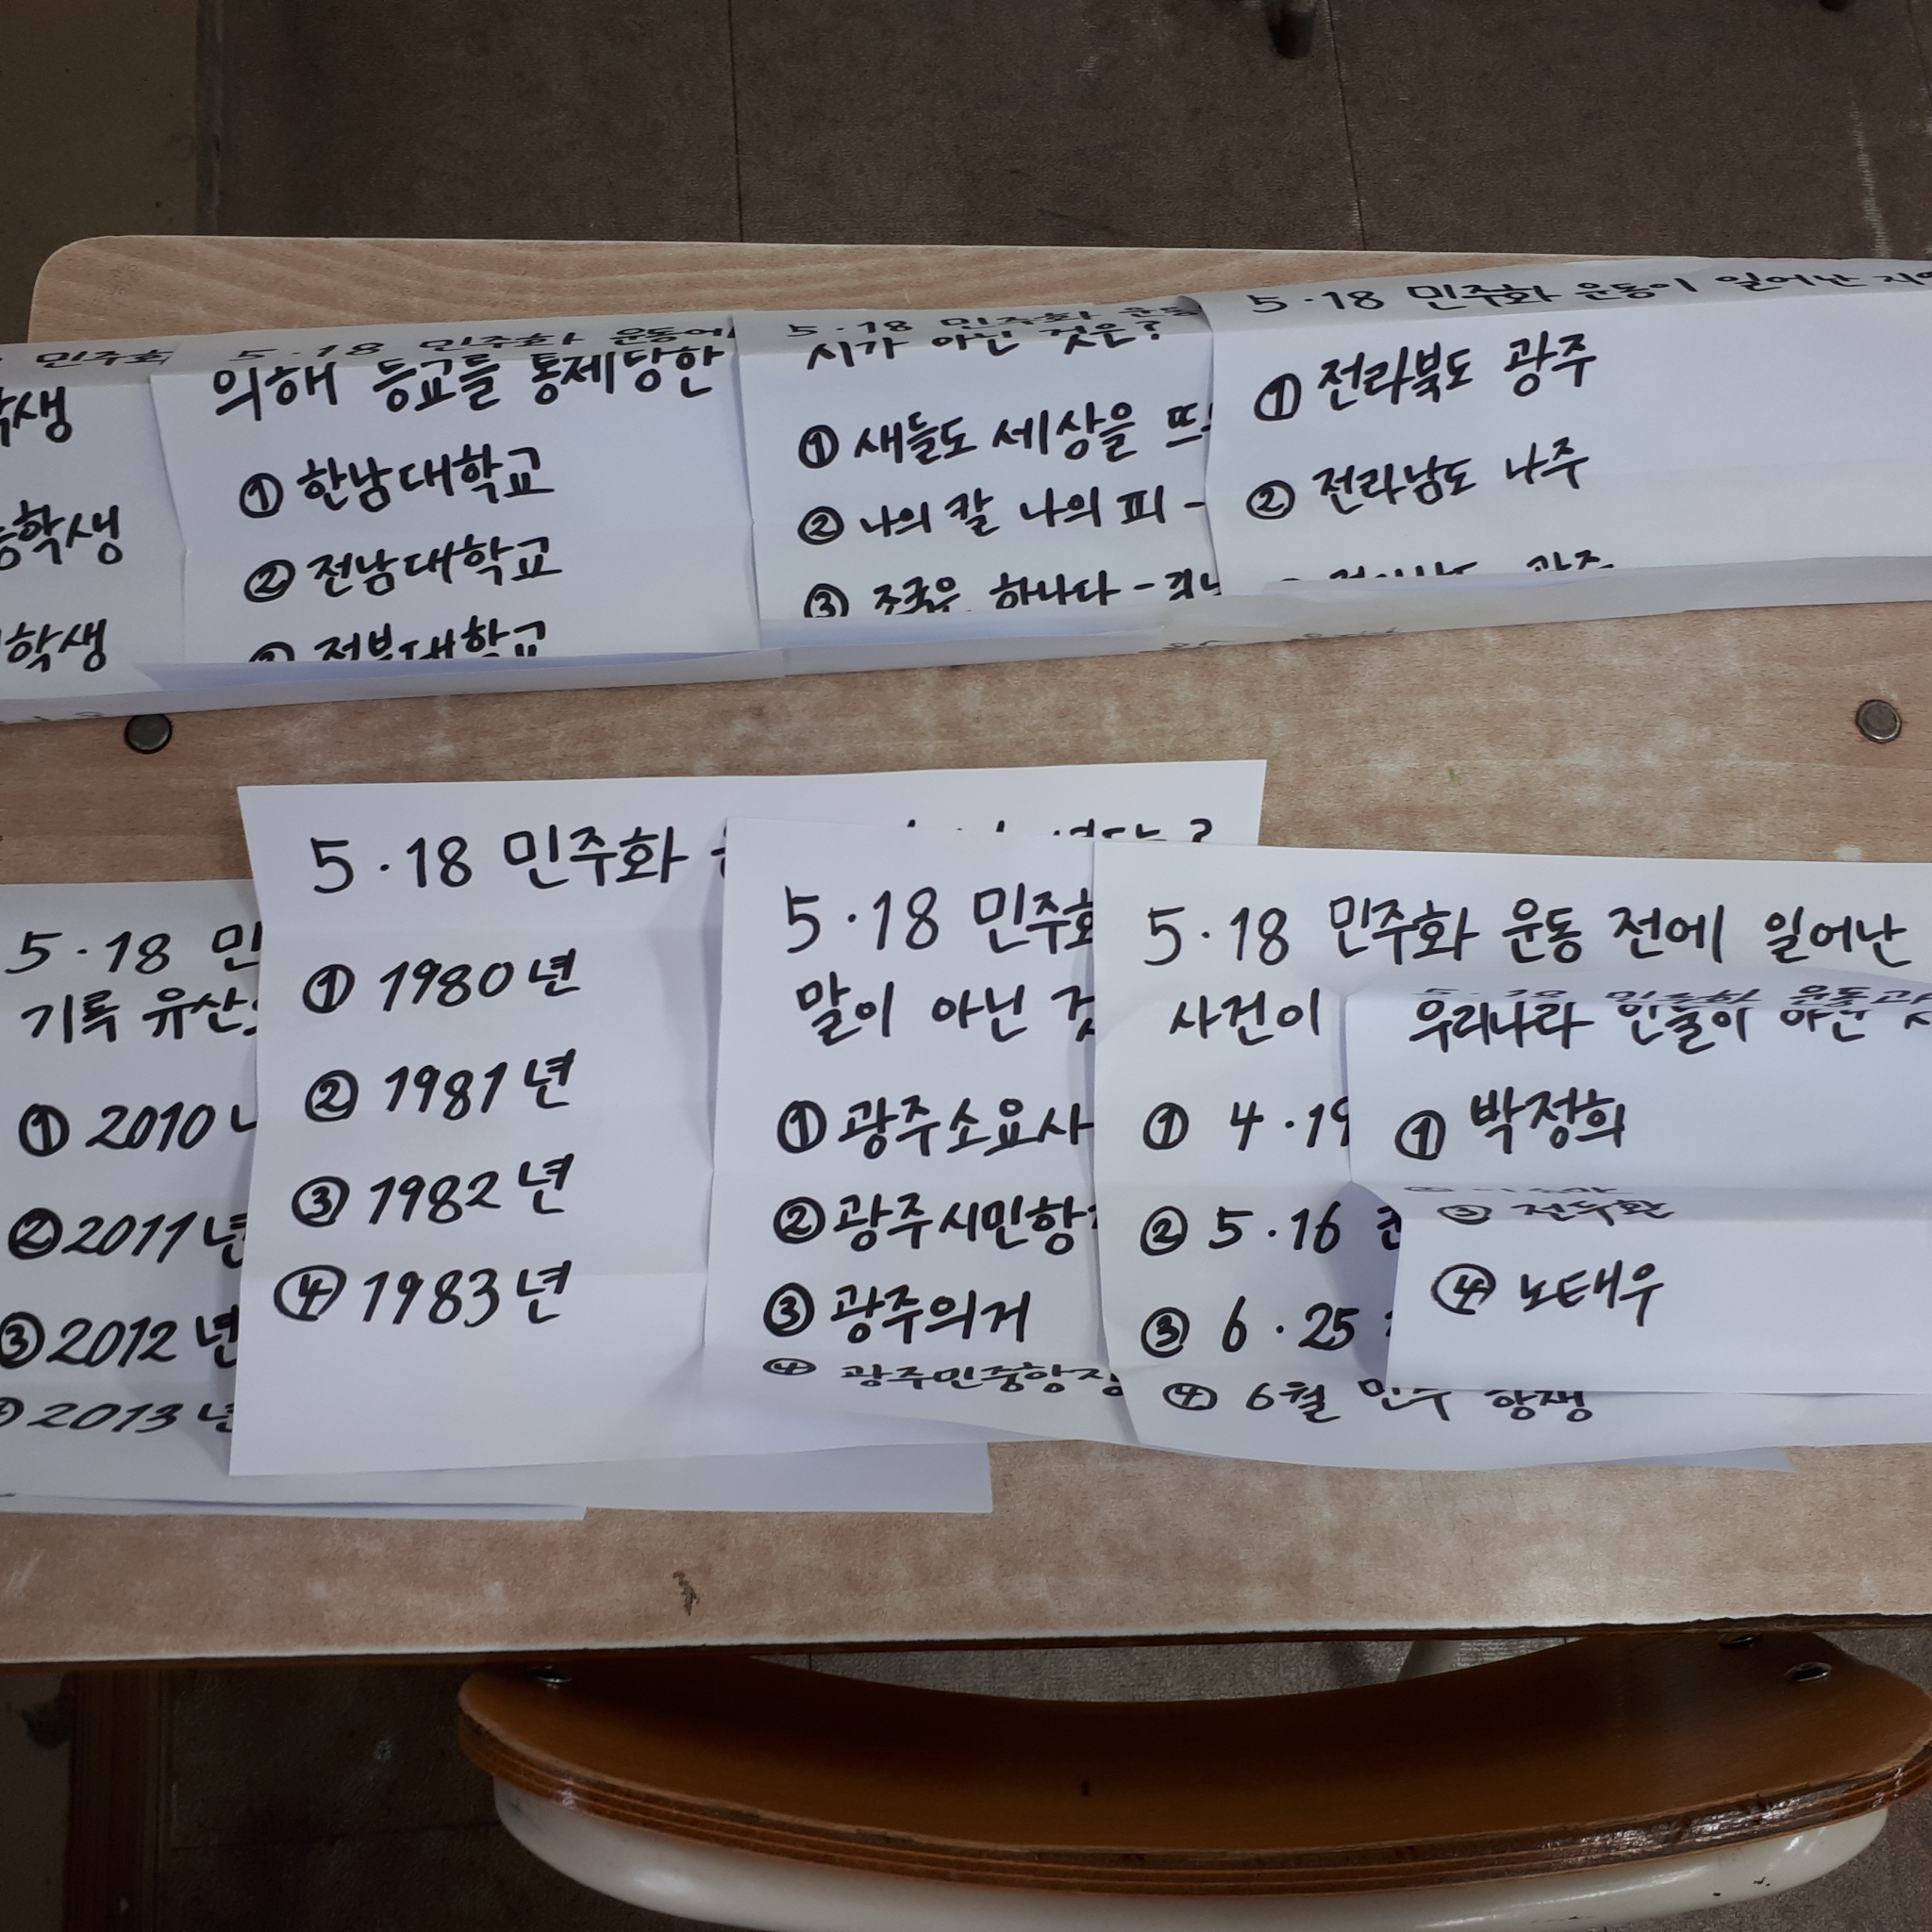 민주화
학생
학생
학생
5·18 민주화 운동에
의해 등교를 통제당한
① 한남대학교
② 전남대학교
③ 전북대학교
5·18 민주화 운동
시가 아닌 것은?
① 새들도 세상을
② 나의 칼 나의 피 -
③ 조국은 하나다 -
5·18 민주화 운동이 일어난
① 전라북도 광주
② 전라남도 나주
광주
5·18 민
기록 유산
① 2010
② 2011년
③ 2012년
2013년
5·18 민주화
① 1980년
② 1981년
③ 1982년
④ 1983년
5·18 민주화
말이 아닌
① 광주소요사
② 광주시민항
③ 광주의거
④ 광주민중항쟁
5·18 민주화 운동 전에 일어난
사건이
① 4·19
② 5·16
③ 6·25
④ 6월 민주 항쟁
5·18 민주화 운동과
우리나라 인물이 아닌
① 박정희
③ 전두환
④ 노태우